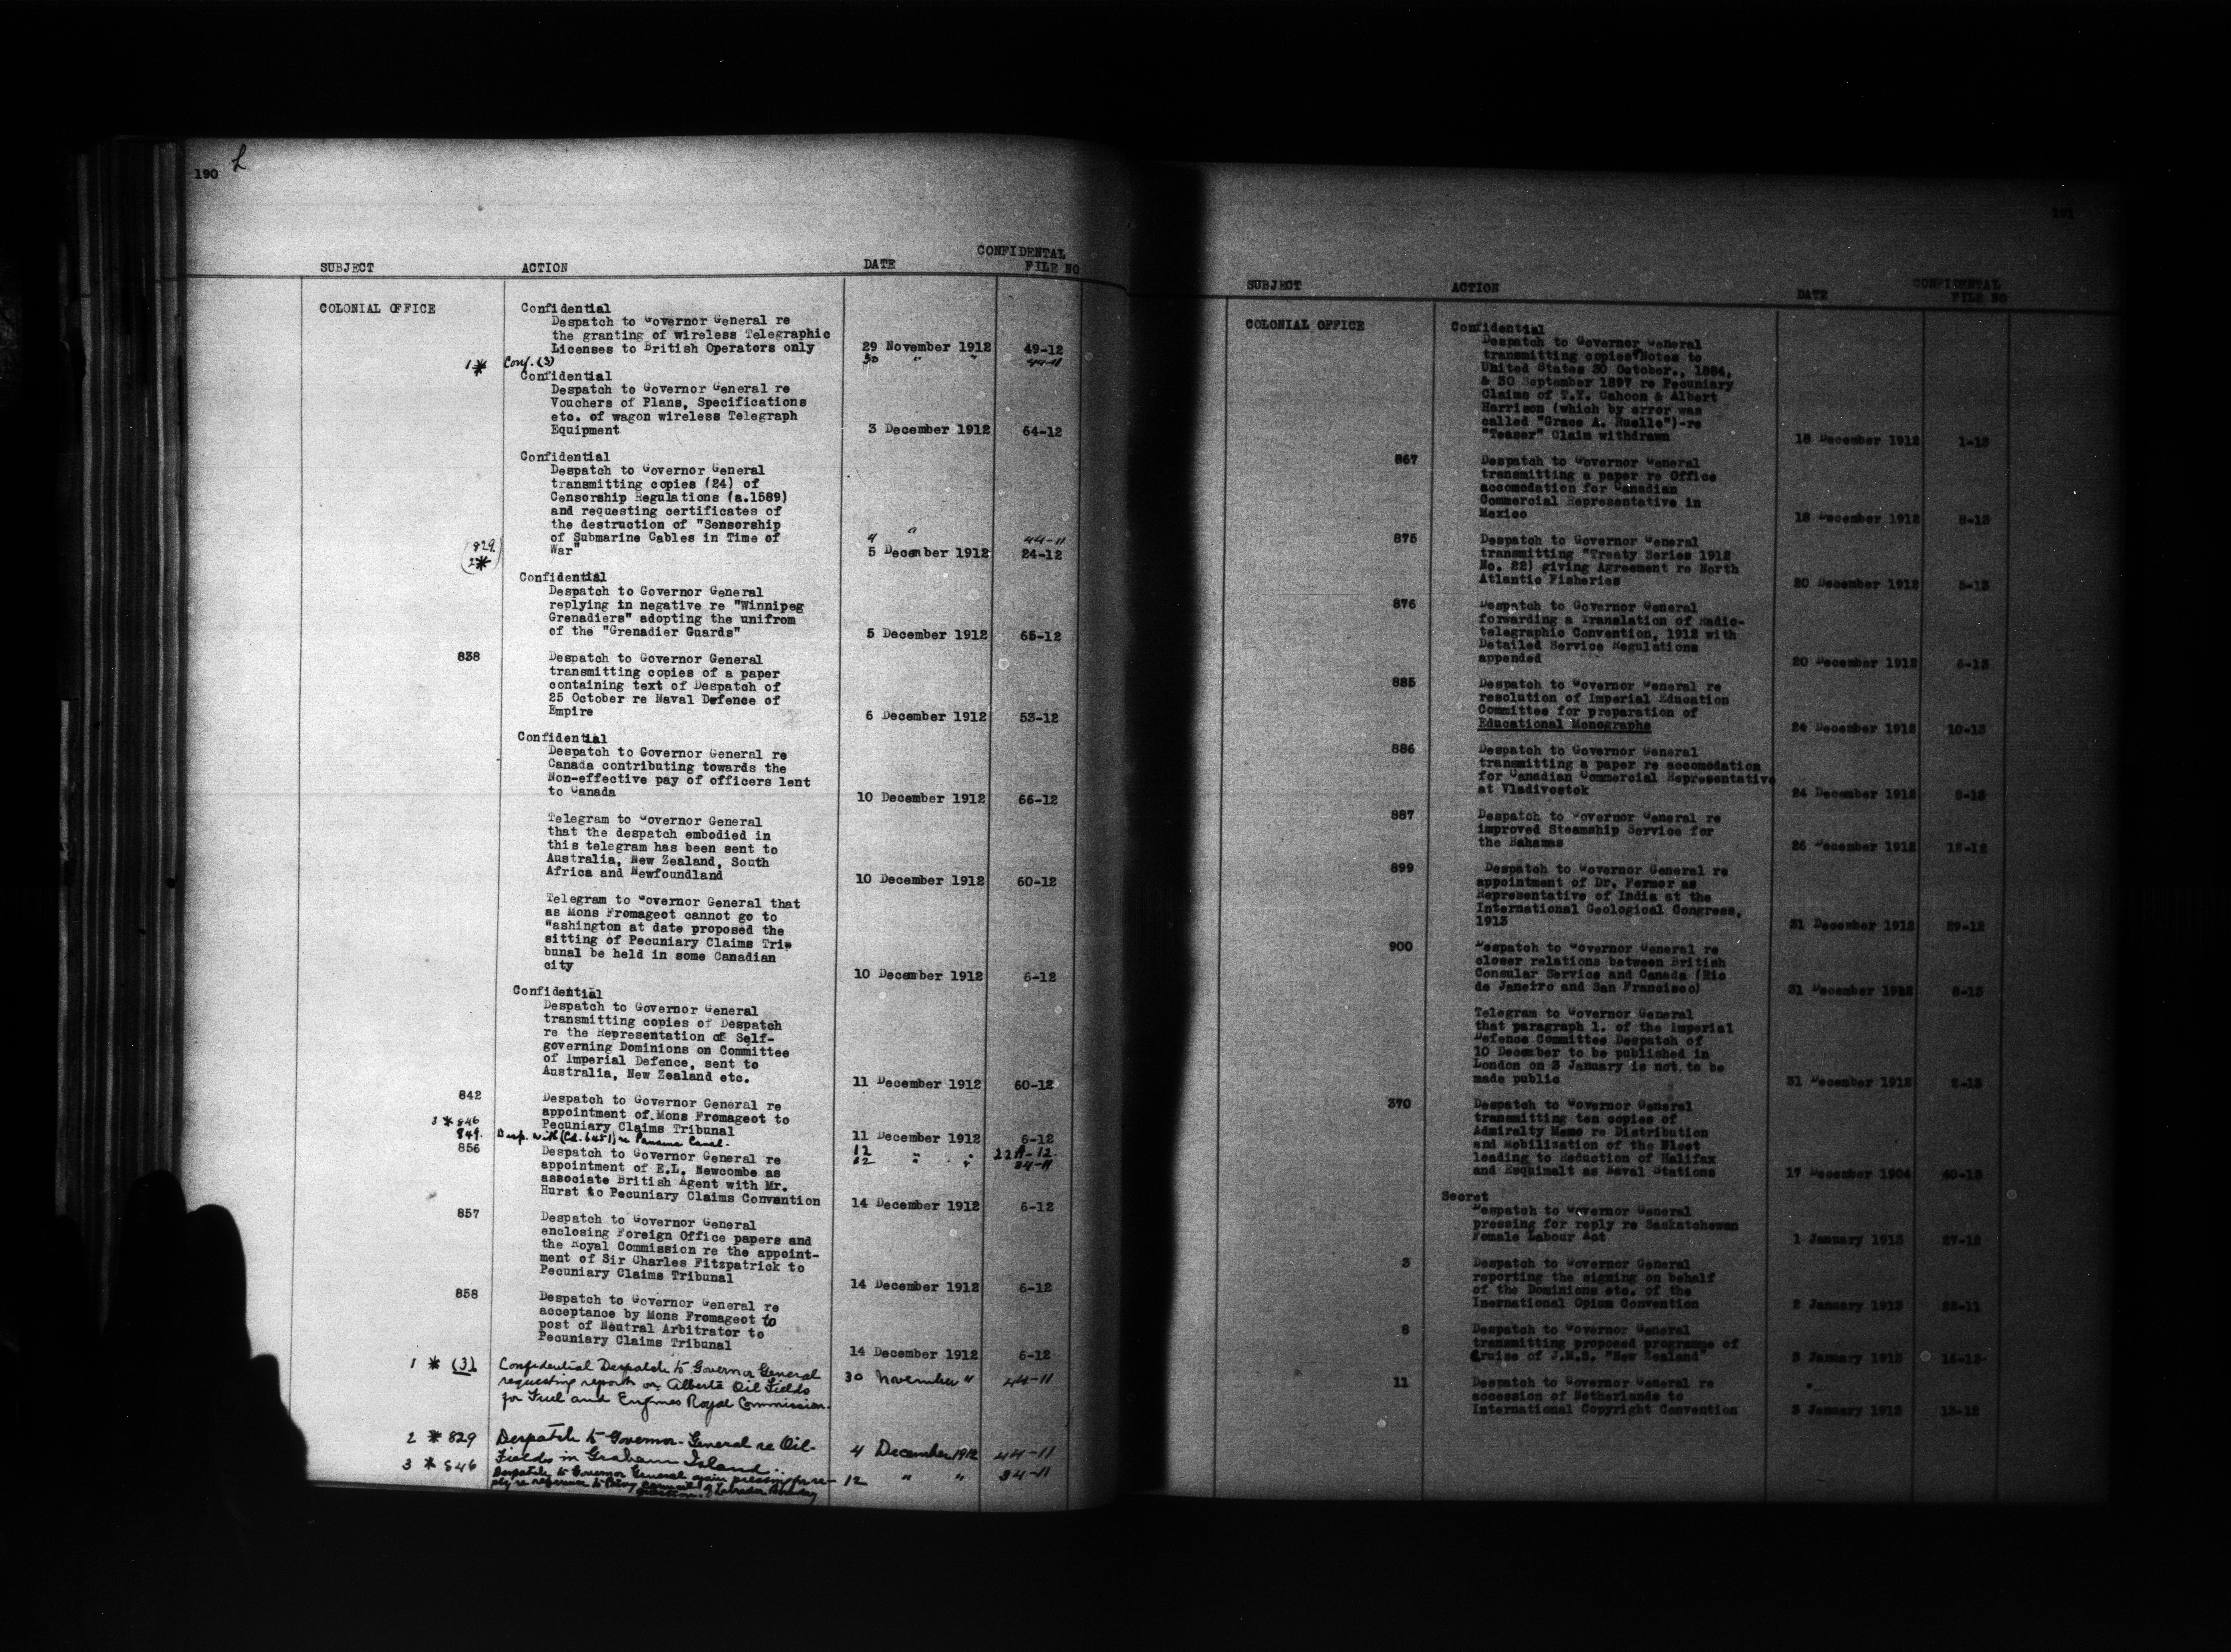 190 L
SUBJECT ACTION DATE CONFIDENTAL FILE NO
COLONIAL OFFICE Confidential
Despatch to Governor General re
the granting of wireless Telegraphic
Licenses to British Operators only 29 November 1912 49-12
1* Conf. (3) 30 " " 44-11
Confidential
Despatch to Governor General re
Vouchers of Plans, Specifications
etc. of wagon wireless Telegraph
Equipment 3 December 1912 64-12
Confidential
Despatch to Governor General
transmitting copies (24) of
Censorship Regulations (a.1589)
and requesting certificates of
the destruction of "Sensorship
of Submarine Cables in Time of
(829 4 " 44-11
2*) War" 5 December 1912 24-12
Confidential
Despatch to Governor General
replying in negative re "Winnipeg
Grenadiers" adopting the unifrom
of the "Grenadier Guards" 5 December 1912 65-12
838 Despatch to Governor General
transmitting copies of a paper
containing text of Despatch of
25 October re Naval Defence of
Empire 6 December 1912 53-12
Confidential
Despatch to Governor General re
Canada contributing towards the
Non-effective pay of officers lent
to Canada 10 December 1912 66-12
Telegram to Governor General
that the despatch embodied in
this telegram has been sent to
Australia, New Zealand, South
Africa and Newfoundland 10 December 1912 60-12
Telegram to Governor General that
as Mons Fromageot cannot go to
Washington at date proposed the
sitting of Pecuniary Claims Tri-
bunal be held in some Canadian
city 10 December 1912 6-12
Confidential
Despatch to Governor General
transmitting copies of Despatch
re the Representation of Self-
governing Dominions on Committee
of Imperial Defence, sent to
Australia, New Zealand etc. 11 December 1912 60-12
842 Despatch to Governor General re
appointment of Mons Fromageot to
Pecuniary Claims Tribunal 11 December 1912 6-12
3 * 846
849. Desp. with (Cd. 6451) re Panama Canal. 12 " " 22A-12.
12 " " 34-11
856 Despatch to Governor General re
appointment of E.L. Newcombe as
associate British Agent with Mr.
Hurst to Pecuniary Claims Convention 14 December 1912 6-12
857 Despatch to Governor General
enclosing Foreign Office papers and
the Royal Commission re the appoint-
ment of Sir Charles Fitzpatrick to
Pecuniary Claims Tribunal 14 December 1912 6-12
858 Despatch to Governor General re
acceptance by Mons Fromageot to
post of Neutral Arbitrator to
Pecuniary Claims Tribunal 14 December 1912 6-12
1 * (3). Confidential Despatch to Governor General
requesting report on Alberta Oil Fields 30 November " 44-11
for Fuel and Engines Royal Commission.
2 * 829 Despatch to Governor-General re Oil-
Fields in Graham Island. 4 December 1912 44-11
3 * 846 Despatch to Governor General again pressing for re-
ply re reference to Privy Council of Labrador Boundary 12 " " 34-11
question.
191
SUBJECT ACTION DATE CONFIDENTAL FILE NO
COLONIAL OFFICE Confidential
Despatch to Governor General
transmitting copies Notes to
United States 30 October., 1884,
& 30 September 1897 re Pecuniary
Claims of T.Y. Cahoon & Albert
Harrison (which by error was
called "Grace A. Ruelle")-re
"Teaser" Claim withdrawn 18 December 1912 1-13
867 Despatch to Governor General
transmitting a paper re Office
accomodation for Canadian
Commercial Representative in
Mexico 18 December 1912 8-13
875 Despatch to Governor General
transmitting "Treaty Series 1912
No. 22) giving Agreement re North
Atlantic Fisheries 20 December 1912 5-13
876 Despatch to Governor General
forwarding a Translation of Radio-
telegraphic Convention, 1912 with
Detailed Service Regulations
appended 20 December 1912 6-13
885 Despatch to Governor General re
resolution of Imperial Education
Committee for preparation of
Educational Monographs 24 December 1912 10-13
886 Despatch to Governor General
transmitting a paper re accomodation
for Canadian Commercial Representative
at Vladivostok 24 December 1912 8-13
887 Despatch to Governor General re
improved Steamship Service for
the Bahamas 26 December 1912 12-12
899 Despatch to Governor General re
appointment of Dr. Fermor as
Representative of India at the
International Geological Congress,
1913 31 December 1912 29-12
900 Despatch to Governor General re
closer relations between British
Consular Service and Canada (Rio
de Janeiro and San Francisco) 31 December 1912 8-13
Telegram to Governor General
that paragraph 1. of the Imperial
Defence Committee Despatch of
10 December to be published in
London on 3 January is not to be
made public 31 December 1912 2-13
370 Despatch to Governor General
transmitting ten copies of
Admiralty Memo re Distribution
and Mobilization of the Fleet
leading to Reduction of Halifax
and Esquimalt as Naval Stations 17 December 1904 40-13
Secret
Despatch to Governor General
pressing for reply re Saskatchewan
Female Labour Act 1 January 1913 27-12
3 Despatch to Governor General
reporting the signing on behalf
of the Dominions etc. of the
Inernational Opium Convention 2 January 1913 22-11
8 Despatch to Governor General
transmitting proposed programme of
Cruise of J.M.S. "New Zealand" 3 January 1913 15-13
11 Despatch to Governor General re
accession of Netherlands to
International Copyright Convention 3 January 1913 13-12